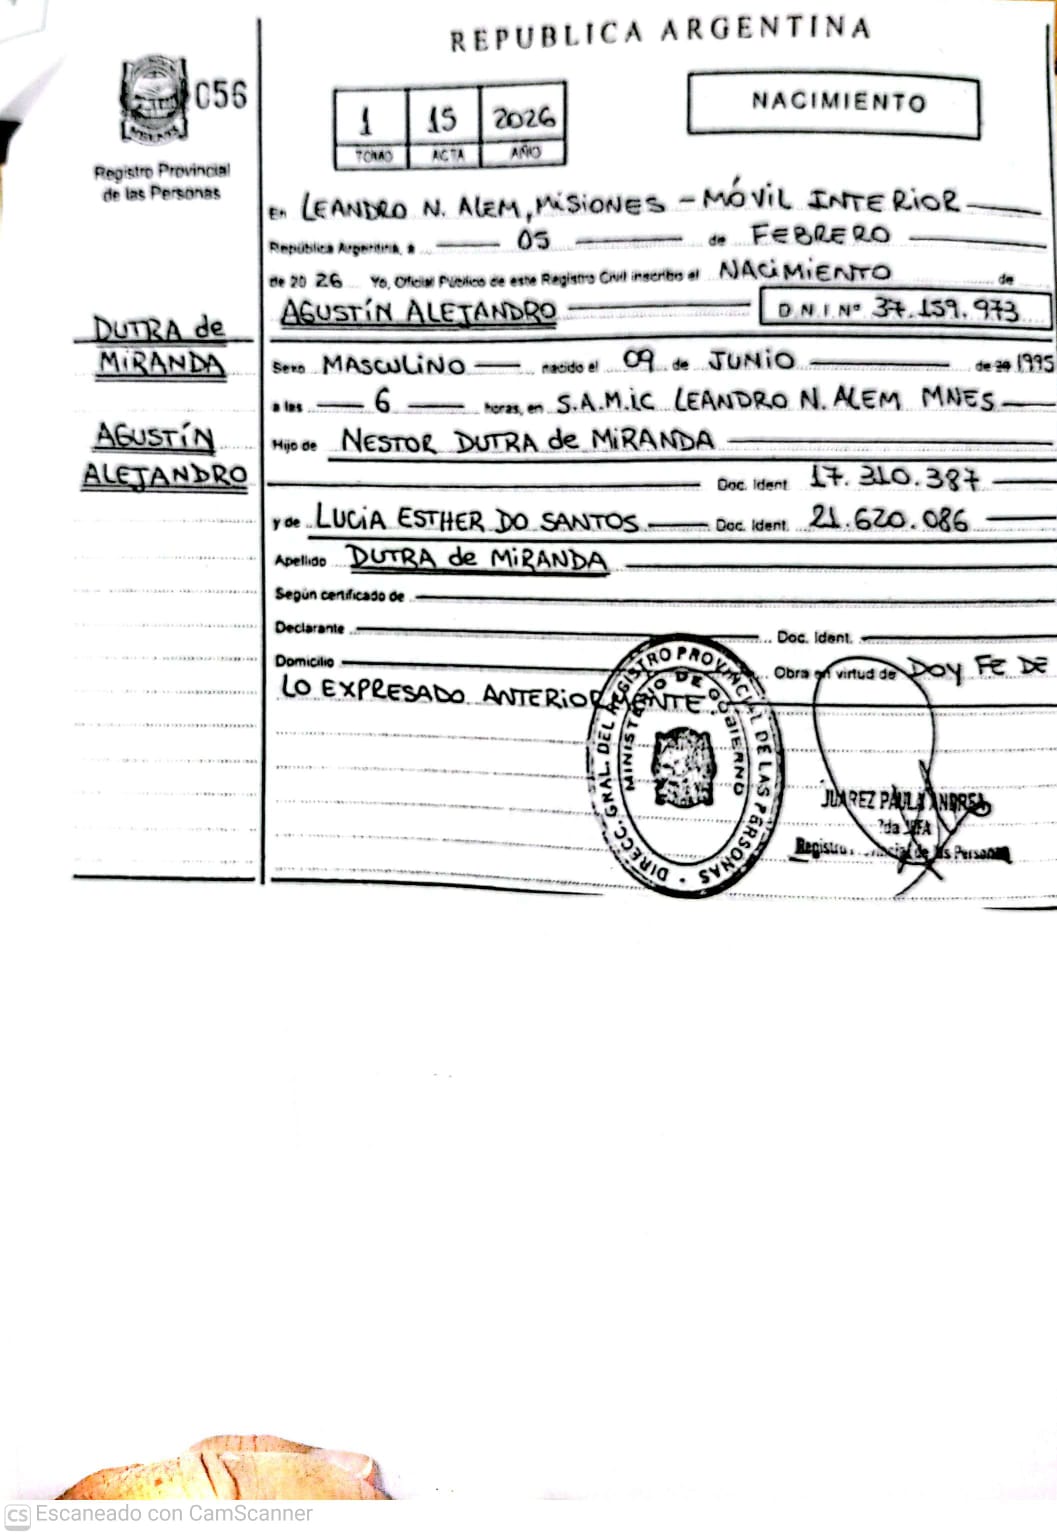 REPUBLICA ARGENTINA
056
Registro Provincial
de las Personas
1 15 2026
TOMO ACTA AÑO
NACIMIENTO
En LEANDRO N. ALEM, MISIONES - MÓVIL INTERIOR
República Argentina, a 05 de FEBRERO
de 2026 Yo, Oficial Público de este Registro Civil inscribo el NACIMIENTO de
AGUSTÍN ALEJANDRO D.N.I. Nº 37.159.973
DUTRA de
MIRANDA
AGUSTÍN
ALEJANDRO
Sexo MASCULINO nacido el 09 de JUNIO de 20 1995
a las 6 horas, en S.A.M.IC LEANDRO N. ALEM MNES
Hijo de NESTOR DUTRA de MIRANDA
Doc. Ident. 17.310.387
y de LUCIA ESTHER DO SANTOS Doc. Ident. 21.620.086
Apellido DUTRA de MIRANDA
Según certificado de
Declarante Doc. Ident.
Domicilio Obra en virtud de DOY FE DE
LO EXPRESADO ANTERIORMENTE.
DIRECC. GRAL. DEL REGISTRO PROVINCIAL DE LAS PERSONAS
MINISTERIO DE GOBIERNO
JUAREZ PAULA ANDREA
2da JEFA
Registro Provincial de las Personas
CS Escaneado con CamScanner